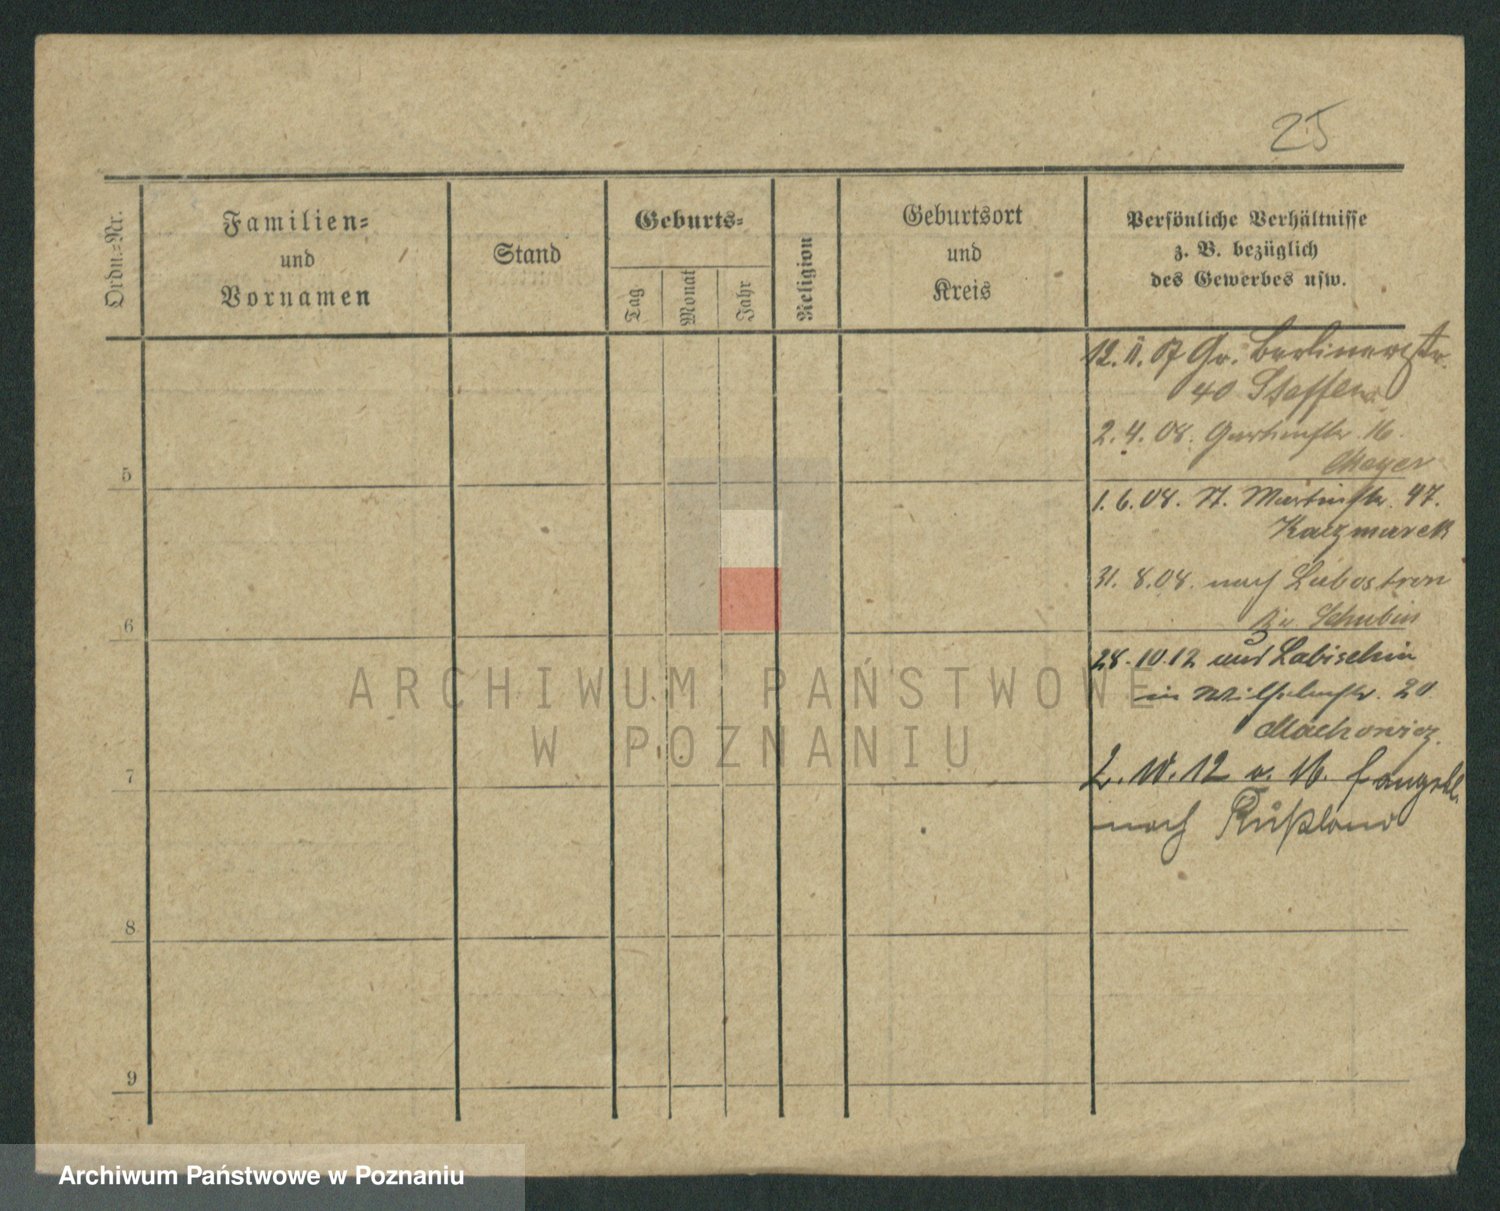 25
Ordn.=Nr.
Familien=
und
Vornamen
Stand
Geburts=
Tag
Monat
Jahr
Religion
Geburtsort
und
Kreis
Persönliche Verhältnisse
z. B. bezüglich
des Gewerbes usw.
12. 11. 07 Gr. Berlinerstr.
40 Steffen
2. 4. 08. Gartenstr. 16.
Meyer
5
1. 6. 08. St. Martinstr. 47.
Kaczmarek
31. 8. 08. nach Lubostron
Schubin
6
28. 10. 12 aus Labischin
in Wilhelmstr. 20
Machowicz.
7
2. 11. 12 v. 16.
nach Rußland
8
9
ARCHIWUM PAŃSTWOWE
W POZNANIU
Archiwum Państwowe w Poznaniu